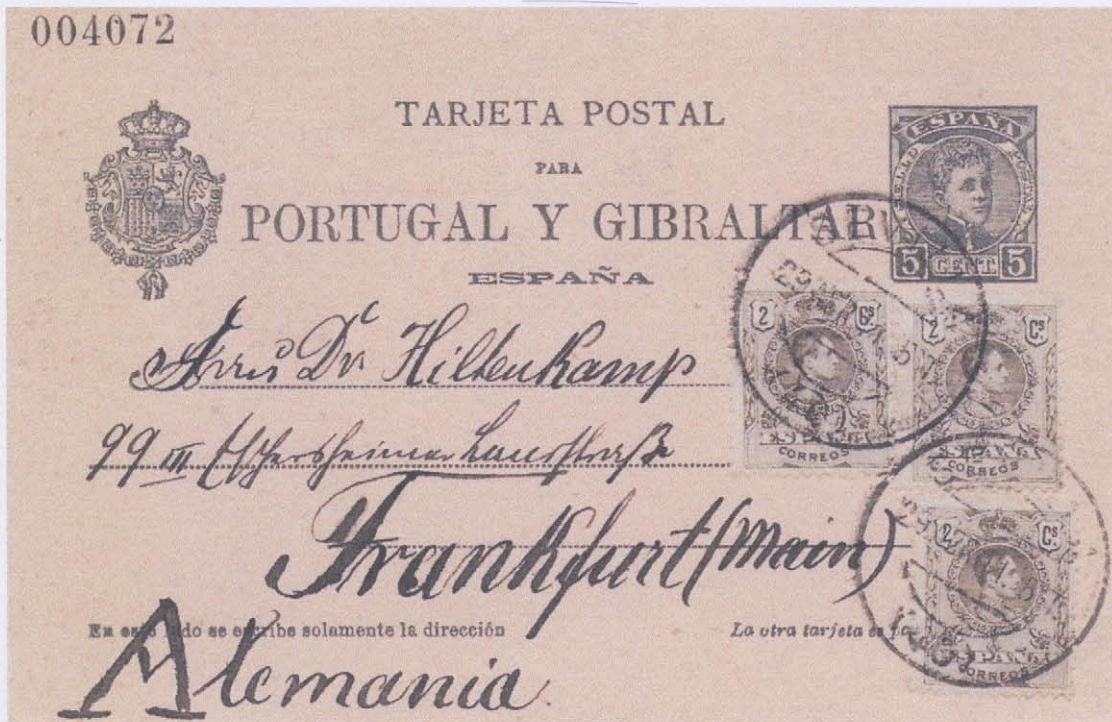 004072
TARJETA POSTAL
PARA
PORTUGAL Y GIBRALTAR
ESPAÑA
ESPAÑA
SELLO POSTAL
5 CENT 5
2 Cs
ESPAÑA
CORREOS
2 Cs
ESPAÑA
CORREOS
Dr Hiltenkamp
99 III Eschersheimer Landstraße
Frankfurt (Main)
2 Cs
ESPAÑA
CORREOS
En este lado se escribe solamente la dirección
La otra tarjeta es pa
Alemania.